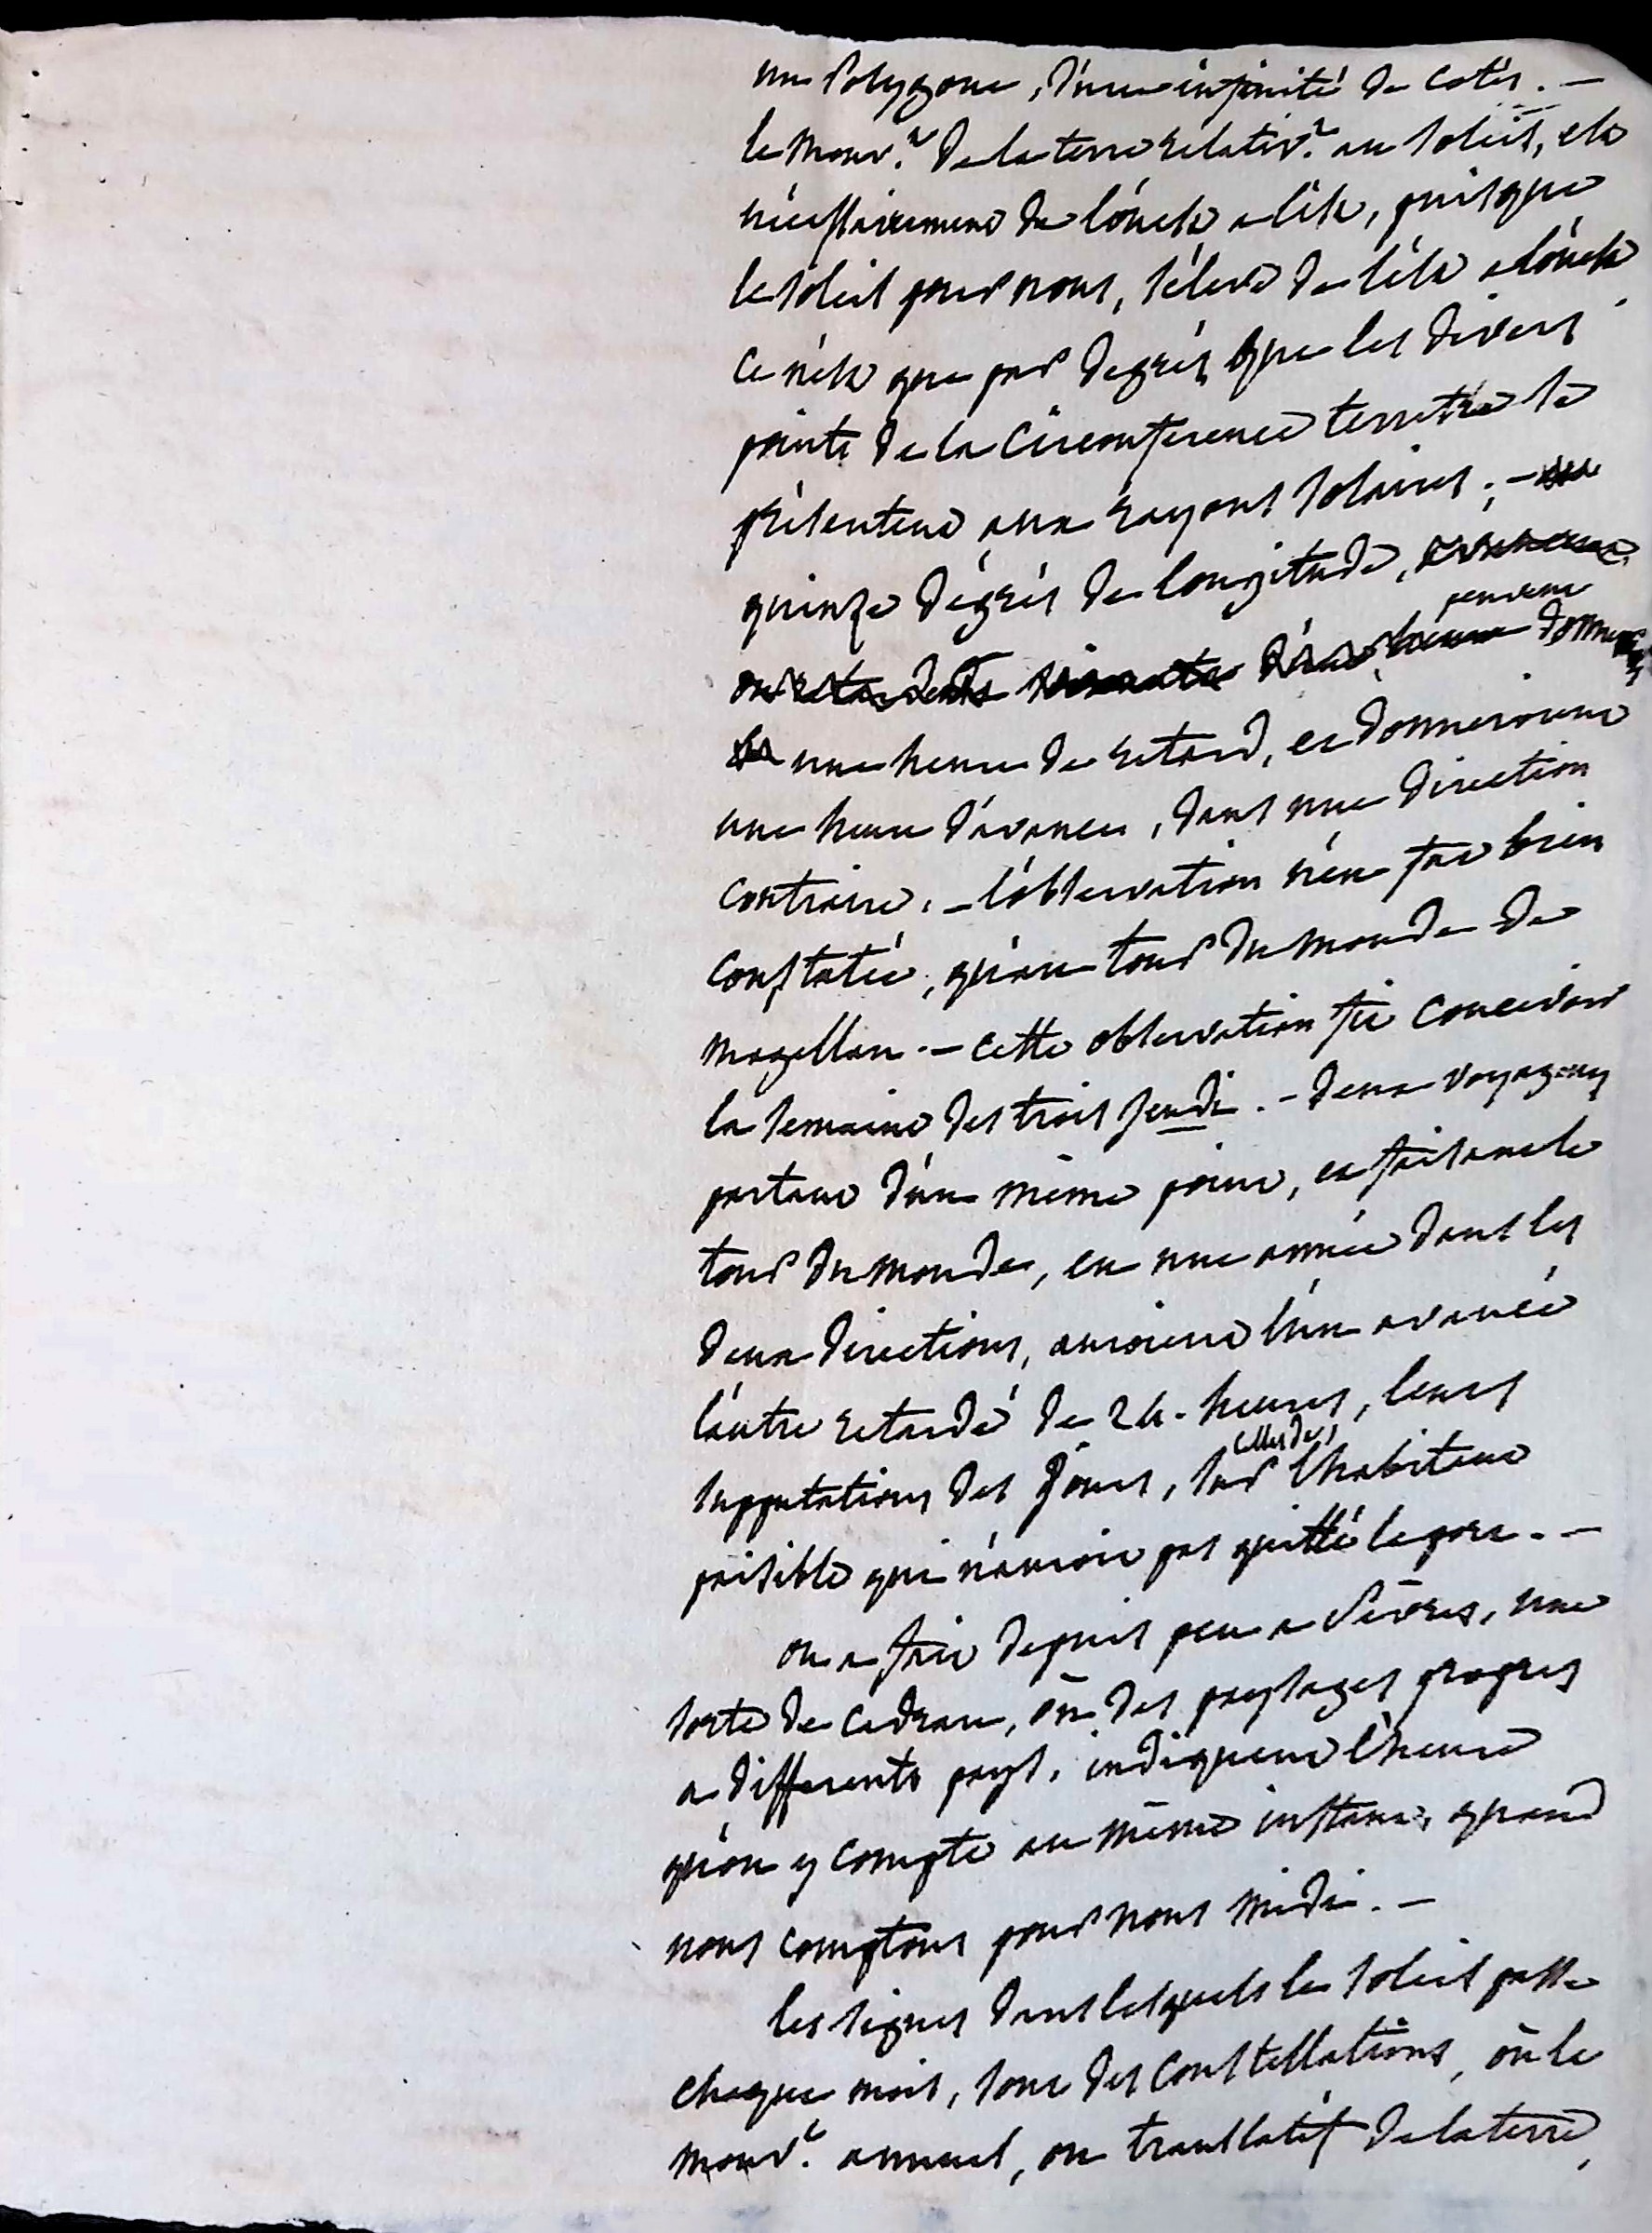 un Polygone, d'une infinité de cotés. —
le mouv.t de la terre relativ.t au soleil, est
nécessairement de l'ouest a l'est, puisque
le soleil pour nous, s'éleve de l'est a l'ouest
ce n'est que par degrés, que les divers
points de la circonference terrestre se
présentent aux rayons solaires; —
quinze dégrés de longitude,
peuvent
donner
une heure de retard, et donneroient
une heure d'avance, dans une direction
contraire. — l'observation n'en fut bien
constatée, qu'au tour du monde de
magellan. — cette observation fit concevoir
la semaine des trois jeudi. — deux voyageurs
partant d'un même point, et faisant le
tour du monde, en une année dans les
deux directions, auroient l'un avancé
l'autre retardé de 24. heures, leurs
celles de
supputations des jours, sur l'habitant
paisible qui n'auroit pas quitté le port. —
on a fait depuis peu a Sèvres, une
sorte de cadran, où des paysages propres
a differents pays, indiquent l'heure
qu'on y compte au même instant, quand
nous comptons pour nous midi. —
les signes dans lesquels le soleil passe
chaque mois, sont des constellations, où le
mouv.t annuel, ou translatif de la terre,